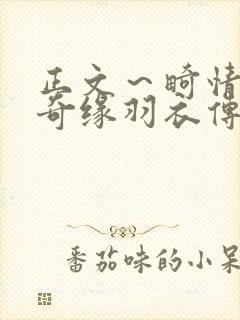 正文～畸情
奇缘羽衣傳
番茄味的小呆